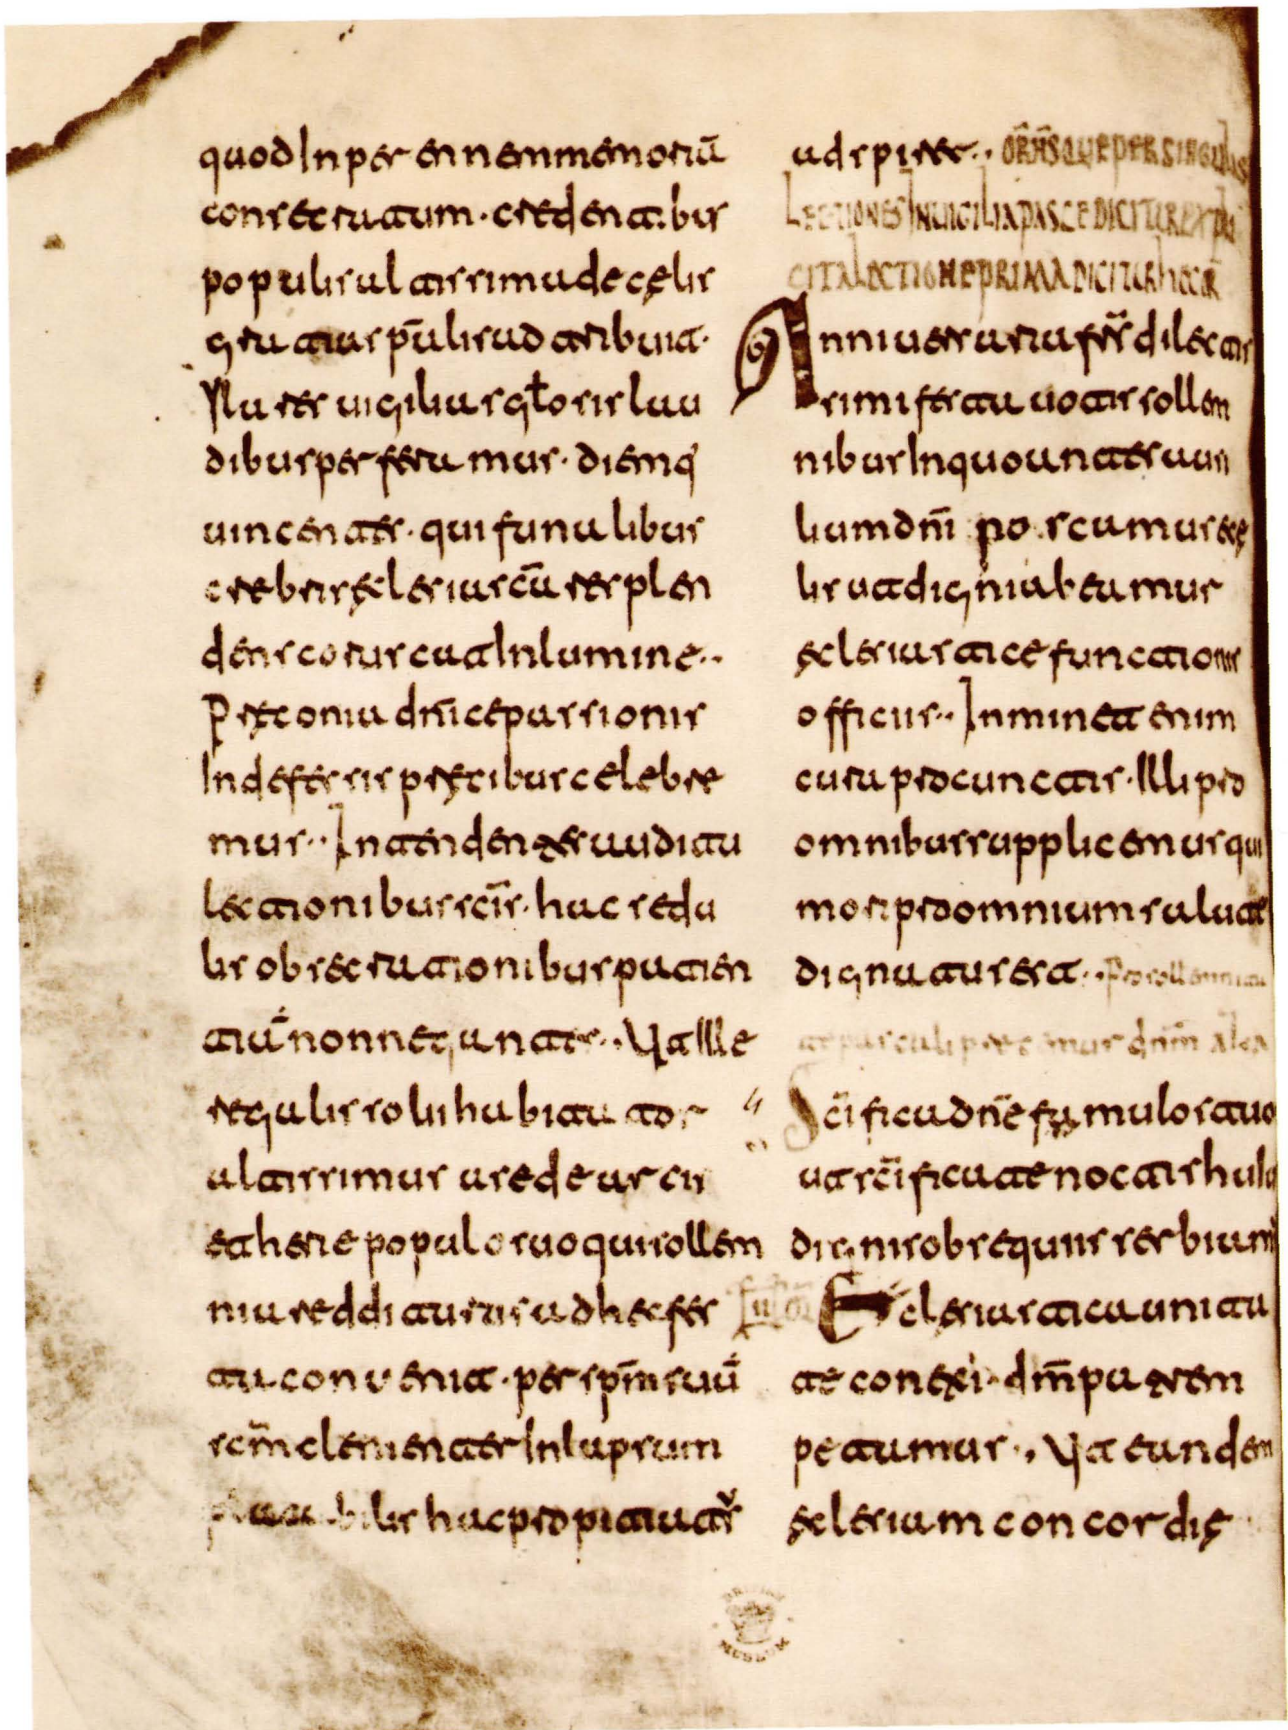 quod In perennem memoriã
consecratum · credentibus
populis altissima de cęlis
gratia
Illa uigilias lau
dibus perferamus · diemq
uincentes · qui fanalibus
crebris ęclesias cũ resplen
dens coruscat In lumine··
Pręconia dñice passionis
Indefessis pręcibus celebre
mus·· Intendentes audita
lectionibus scĩs · hac sedu
lis obsecrationibus patien
tiã non negantes·· Ut Ille
regalis solii habitator
altissimus a sede
et populo suo qui sollem
nia redditurus ad hec fes
ta conuenit · per spm̃ suũ
scm̃ clementer Inlapsum
placabilis hac propitiatus
adspiret·· OR̃NS̃QUE PER SINGULAS
LECTIONES IN UIGILIA PASCE DICITUR EXPLI
CITA LECTIONE PRIMA DICITUR hEC OR̃
Anniuersaria frs̃ dilectis
simi festa uotis sollem
nibus Inquoantes auxi
lium dnĩ poscamus
ut digni abeamur
ęclesiastice functionis
officiis·· Inminet enim
cura pro cunctis · Illi pro
omnibus supplicemus qui
mori pro omnium salute
dignatus est·· Pro sollemnita
te pascali precemur dnm̃
Scĩfica dnẽ famulos tuo
ut scĩficate noctis huius
dignis obsequiis serbiant
Eclesiastica unita
te conexi · dm̃ patrem
petamus·· Ut eandem
ęclesiam concordię